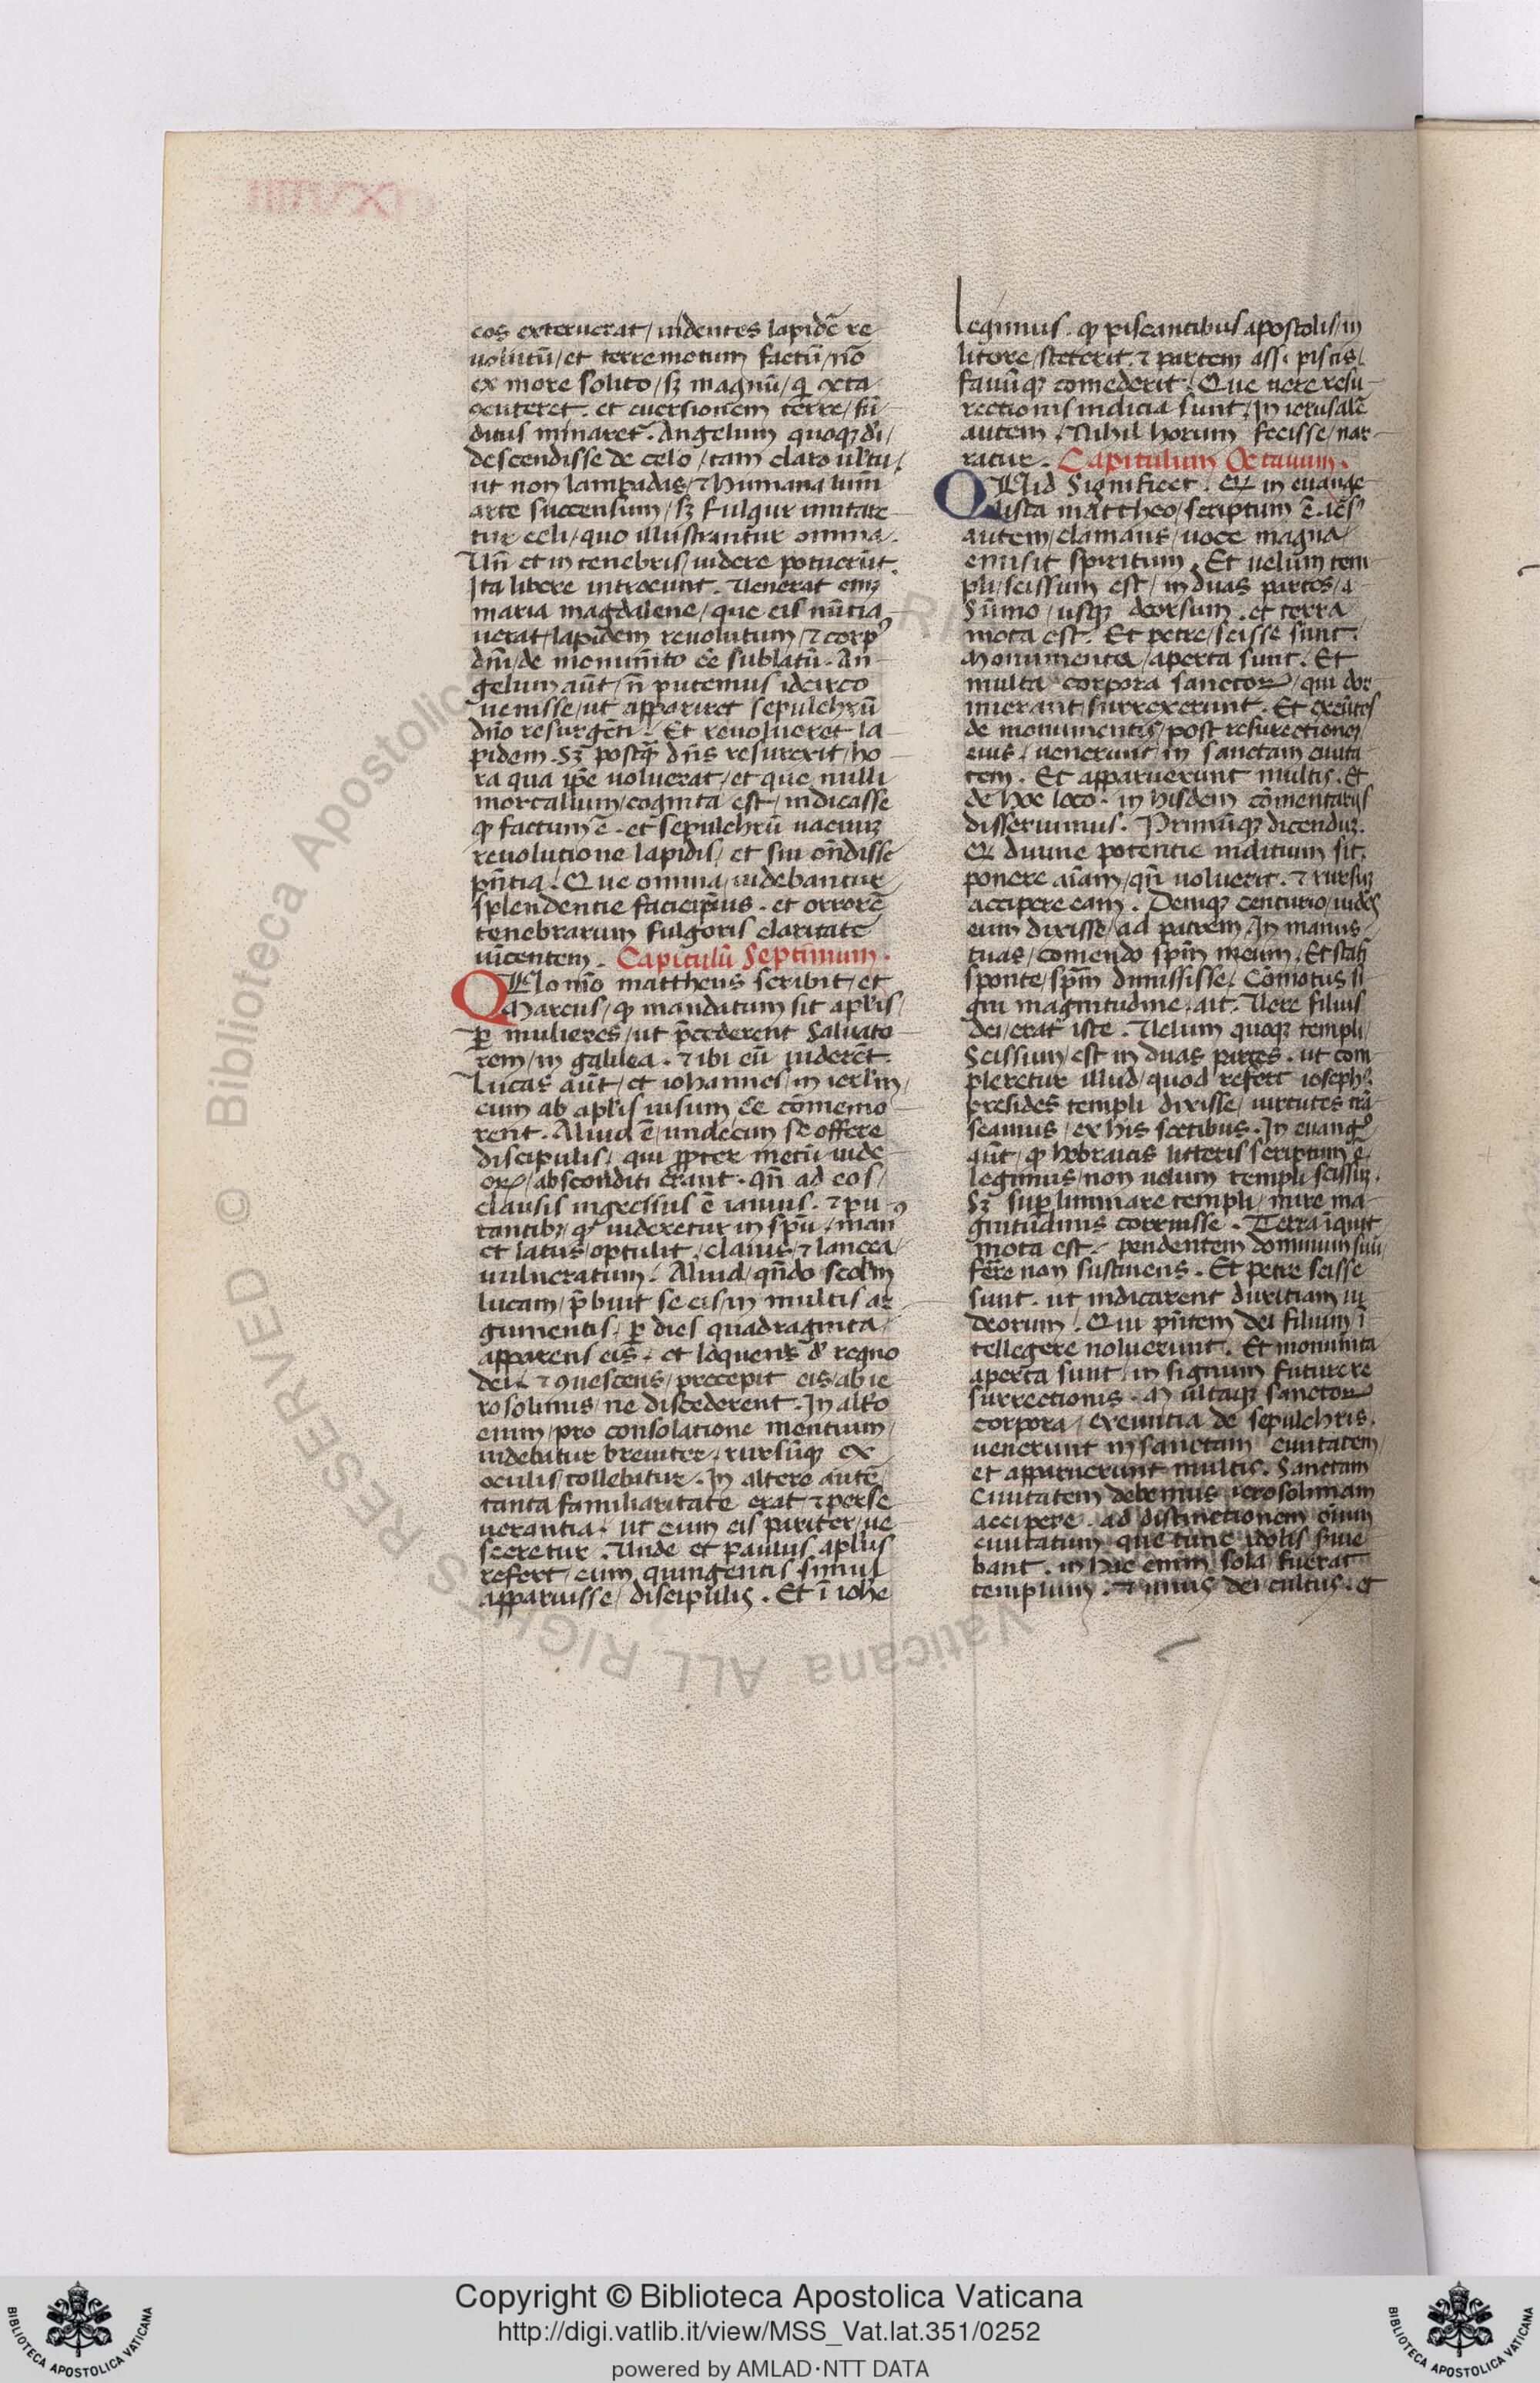 eos exteruerat / uidentes lapidē re
uolutū / et terremotum factū / nō
ex more solito / sꝫ magnū / q̄ cxta
cuteret. et euersionem terre / fū
ditus minaret᷑. Angelum quoqꝫ dn̄i /
descendisse de celo / tam claro uultu /
ut non lampadis / ⁊ humana lum̄
arte succensum / sꝫ fulgur imitare
tur celi / quo illustrantur omnia.
Un̄ et in tenebris / uidere potuerūt.
Ita libere introeunt. Uenerat enīꝫ
maria magdalene / que eis nūtia
uerat / lapidem reuolutum / ⁊ corpꝰ
dn̄i / de monum̄to ēē sublatū. An
gelum aūt / n̄ putemus idcirco
uenisse / ut appariret sepulchrū
dn̄o resurgēti. Et reuolueret la
pidem. Sꝫ postq̄ dn̄s resurexit / ho
ra qua ip̄e uoluerat / et que nulli
mortalium / cognita est / indicasse
ꝙ factum ē. et sepulchrū uacuuꝫ
reuolutione lapidis / et sui on̄disse
pn̄tia. Que omnia / uidebantur
splendentie faciei ip̄ius. et orrorē
tenebrarum fulgoris claritate
uīcentem. Capitulū Septimum.
QUomō mattheus scribit / et
Marcus / ꝙ mandatum sit apl̄is /
ꝑ mulieres / ut p̄cederent Saluato
rem / in galilea. ⁊ ibi eū uiderēt.
Lucas aūt / et iohannes / in ierl̄m /
eum ab apl̄is uisum / ēē cōmemo
rent. Aliud ē / undecim se offere
discipulis / qui ꝓpter metū iude
oꝝ / absconditi erant. qn̄ ad eos /
clausis ingressus ē ianuis. ⁊ pu
tantibꝫ / qꝫ uideretur in sp̄u / manꝰ
et latus / optulit / clauis / ⁊ lancea /
uulneratum. Aliud / qn̄do scd̄m
lucam / p̄buit se eis / in multis ar
gumentis / ꝑ dies quadraginta /
apparens eis. et loquens d̄ regno
dei. ⁊ ꝯuescens / precepit eis / ab ie
rosolimis / ne discederent. In alt̄o
enim / pro consolatione mentium /
uidebatur breuiter / rursūqꝫ ex
oculis / tollebatur. In altero autē /
tanta familiaritate erat / ⁊ perse
uerantia. ut cum eis pariter / ue
sceretur. Unde et paulus apl̄us
refert / eum quingentis simul
apparuisse / discipulis. Et ī iohe
legimus. ꝙ piscantibus apostolis / in
litore / steterit. ⁊ partem assi piscis /
fauūqꝫ comederit. Que uere resu
rectionis indicia sunt. In ierusalē
autem. Nihil horum fecisse / nar
ratur. Capitulum Octauum.
QUid Significet. Qꝫ in euange
lista mattheo / scriptum ē. iēs
autem / clamans / uoce magna /
emisit spiritum. Et uelum tem
pli / scissum est / in duas partes / a
Sūmo / usqꝫ deorsum. et terra
mota est. Et petre / scisse sunt.
Monumenta / aperta sunt. Et
multa corpora sanctoꝝ / qui dor
mierant / surrexerunt. Et exeūtes
de monumentis / post resurectionem
eius / uenerunt / in sanctam ciuita
tem. Et apparuerunt multis. Et
de hoc loco. in hisdem cōmentarijs
disseruimus. Primūqꝫ dicenduꝫ.
Qꝫ diuine potentie inditium sit.
ponere aīam / qn̄ uoluerit. ⁊ rursuꝫ
accipere eam. Deniqꝫ centurio / uidēs
eum dixisse / ad patrem. In manus
tuas / comendo sp̄m meum. Et stati
sponte / sp̄m dimississe. Cōmotus si
gni magnitudine. ait. Uere filius
dei / erat iste. Uelum quoqꝫ templi /
Scissum / est in duas partes. ut com
pleretur illud / quod refert iosephꝰ.
presides templi dixisse / uirtutes trā
seamus / ex his sectibus. In euanḡo
aūt / ꝙ hebraicis litteris scriptum ē.
legimus / non uelum templi scissuꝫ.
Sꝫ suꝑ liminare templi / mire ma
gnitudinis corruisse. Terra īquit
mota est. pendentem dominum suū /
ferre non sustinens. Et petre scisse
sunt. ut indicarent duritiam iu
deorum. Qui pn̄tem dei filium ī
tellegere noluerunt. Et monumta
aperta sunt / in signum future re
surrectionis. Multaqꝫ sanctoꝝ
corpora / exeuntia de sepulchris.
uenerunt in sanctam ciuitatem /
et apparuerunt multis. Sanctam
Ciuitatem debemus ierosolimam
accipere. ad distinctionem oīum
ciuitatum que tunc ydolis seruie
bant. in hac enim sola fuerat
templum. ⁊ unius dei cultus. et
Copyright © Biblioteca Apostolica Vaticana
http://digi.vatlib.it/view/MSS_Vat.lat.351/0252
powered by AMLAD·NTT DATA
BIBLIOTECA APOSTOLICA VATICANA
BIBLIOTECA APOSTOLICA VATICANA
© Biblioteca Apostolica Vaticana ALL RIGHTS RESERVED